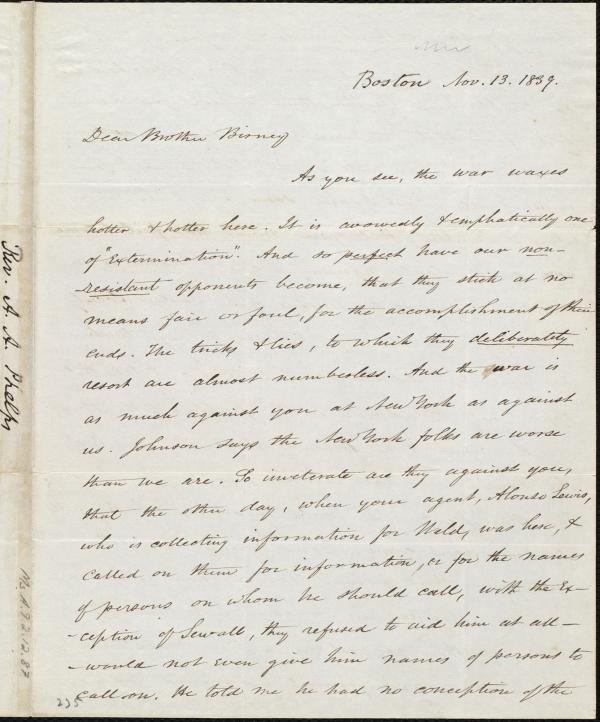 Boston Nov. 13. 1839.
Dear Brother Birney
As you see, the war waxes
hotter & hotter here. It is avowedly & emphatically one,
of "Extermination". And so perfect have our non-
-resistant opponents become, that they stick at no
means fair or foul, for the accomplishment of their
ends. The tricks & lies, to which they deliberately
resort are almost numberless. And the war is
as much against you at New York as against
us. Johnson says the New York folks are worse
than we are. So inveterate are they against you,
that the other day, when your agent, Alonso Lewis,
who is collecting information for Weld, was here, &
called on them for information, or for the names
of persons on whom he should call, with the Ex-
-ception of Sewall, they refused to aid him at all—
-would not even give him names of persons to
call on. He told me he had no conception of the
Rev. A. A. Phelps
Ms. A. 9. 2. 12. 87
235